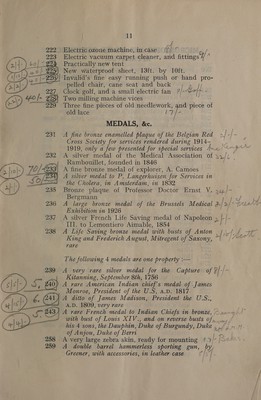 11
222 Electric ozone machine, in case
223 Electric vacuum carpet cleaner, and fittings
224 Practically new tent
225 New waterproof sheet, 13ft. by 10ft.
226 Invalid's fine easy running push or hand pro-
pelled chair, cane seat and back
227 Clock golf, and a small electric fan
40/- 228 Two milling machine vices
229 Three fine pieces of old needlework, and pieces of
old lace
MEDALS, &c.
231 A fine bronze enamelled plaque of the Belgian Red
Cross Society for services rendered during 1914-
1919, only a few presented for special services
232 A silver medal of the Medical Association of
Rambouillet, founded in 1840
70/- 233 A fine bronze medal of explorer, A. Camoes
234 A silver medal to P. Langerhuizen for Services in
the Cholera, in Amsterdam, in 1832
235 Bronze plaque of Professor Doctor Ernst V.
Bergmann
236 A large bronze medal of the Brussels Medical
Exhibition in 1926
237 A silver French Life Saving medal of Napoleon
III. to Lemontiero Aimable, 1854
238 A Life Saving bronze medal with busts of Anton
King and Frederich August, Mitregent of Saxony,
rare
The following 4 medals are one property :—
239 A very rare silver medal for the Capture of
Kitanning, September 8th, 1756
5. 240 A rare American Indian chief's medal of James
Monroe, President of the U.S. A.D. 1817
6. 241 A ditto of James Madison, President the U.S.,
A.D. 1809, very rare
5 243 A rare French medal to Indian Chiefs in bronze,
with bust of Louis XIV., and on reverse busts of
his 4 sons, the Dauphin, Duke of Burgundy, Duke
of Anjou, Duke of Berri
258 A very large zebra skin, ready for mounting
259 A double barrel hammerless sporting gun,
Greener, with accessories, in leather case